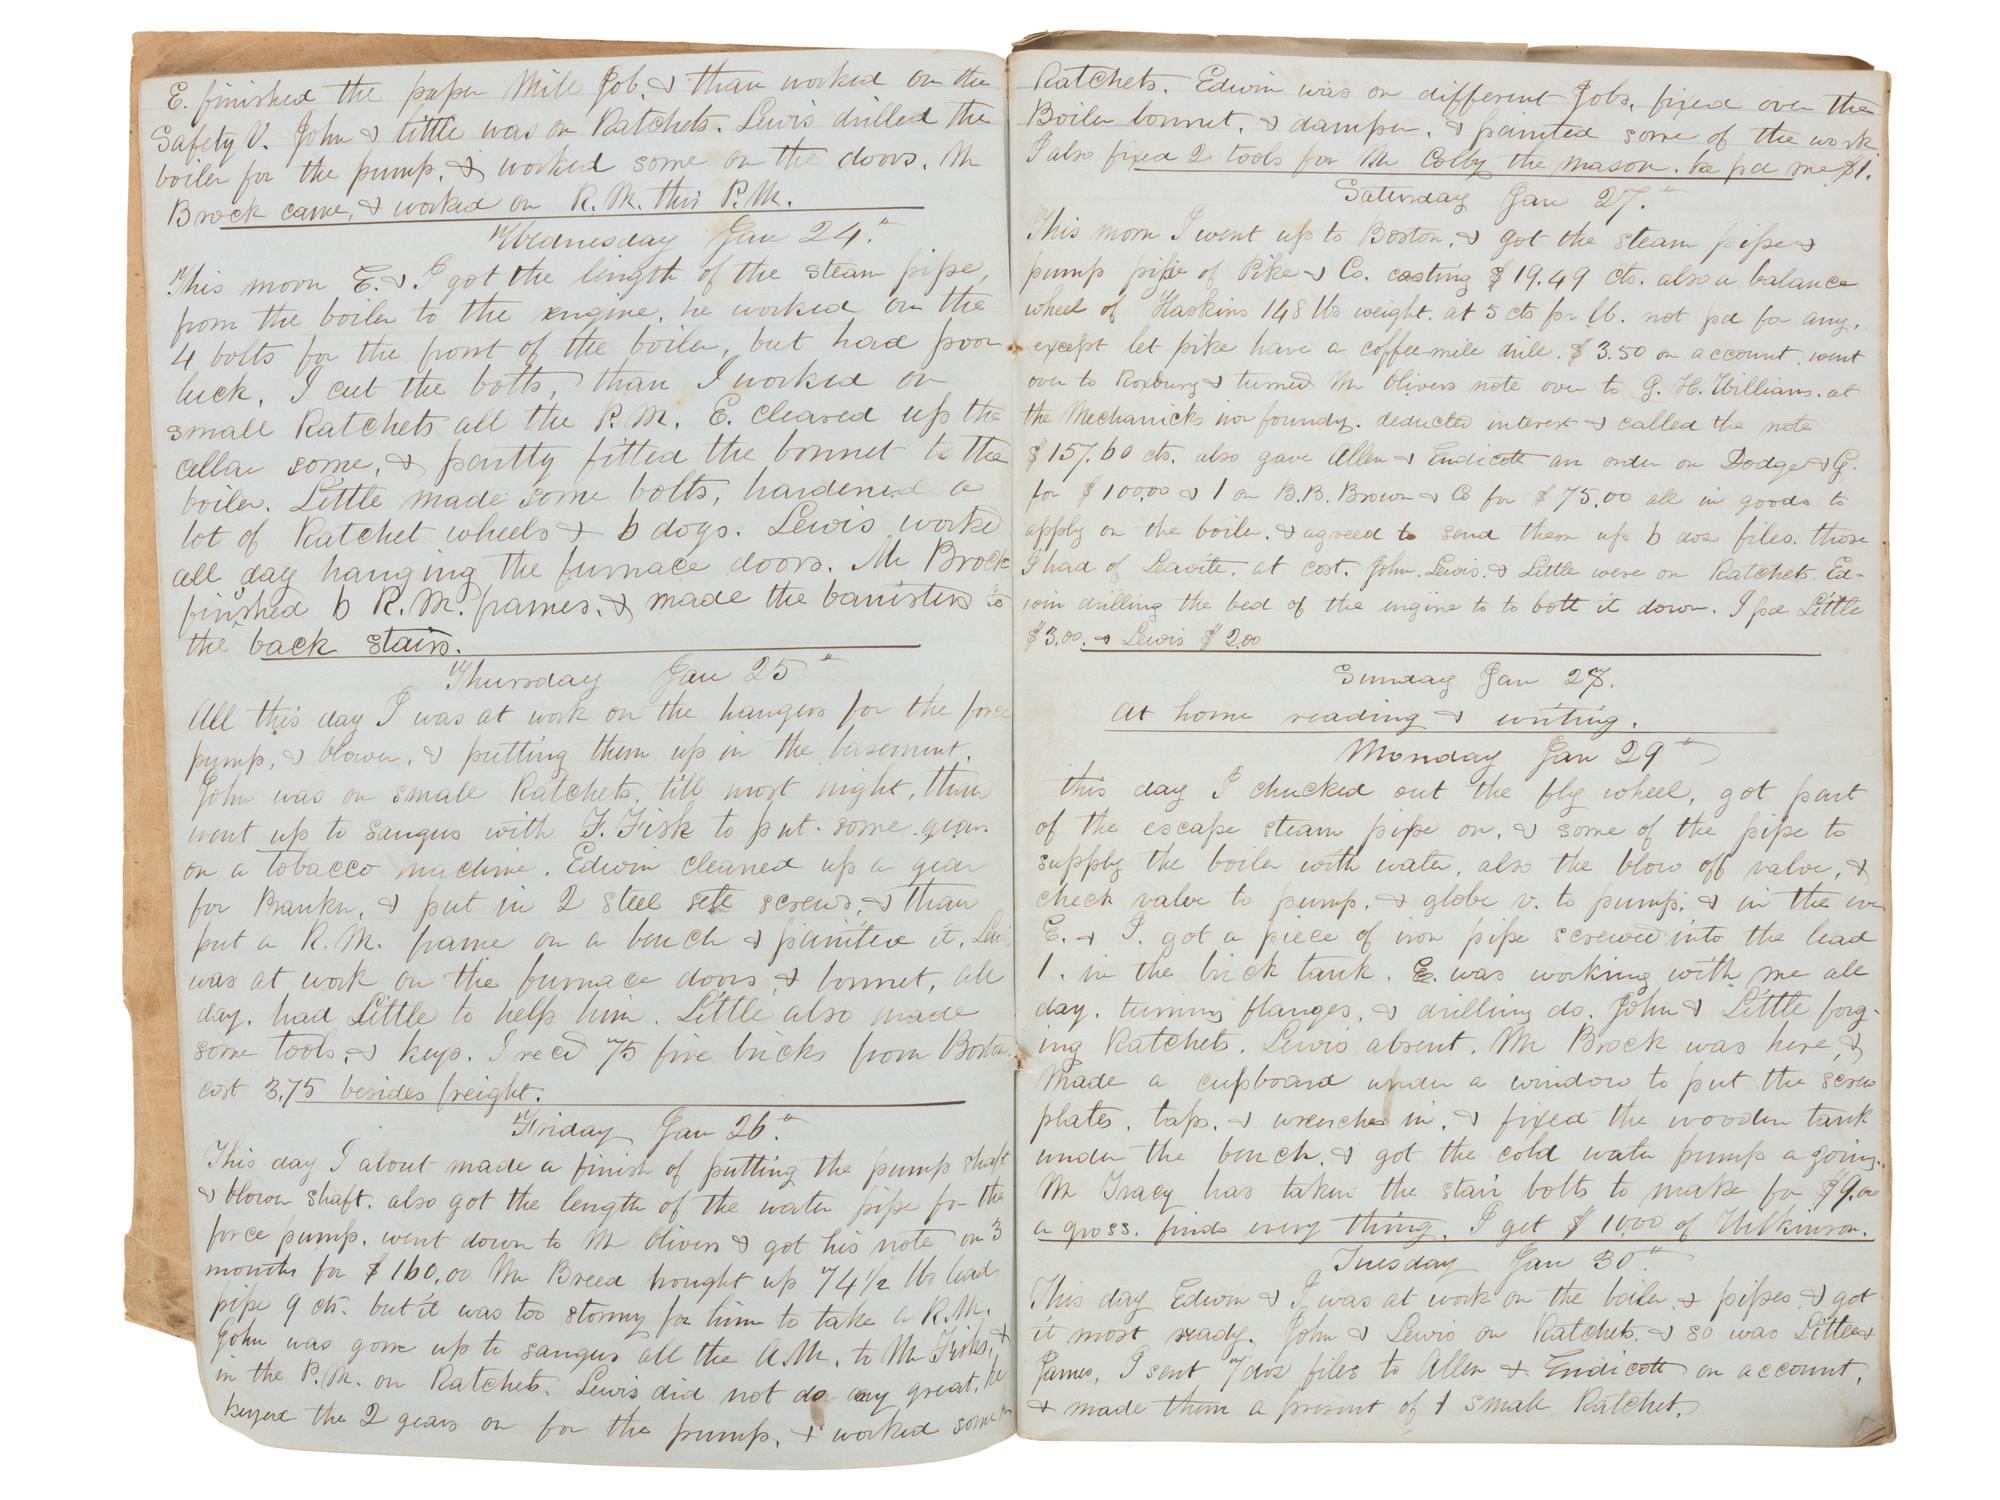 E. finished the paper Mill Job, & than worked on the
Safety V. John & Little was on Ratchets. Lewis drilled the
boiler for the pump, & worked some on the doors. Mr
Brock came, & worked on R. M. this P. M.
Wednesday Jan 24.th
This morn E. & I got the length of the steam pipe,
from the boiler to the engine, he worked on the
4 bolts for the front of the boiler, but had poor
luck, I cut the bolts, than I worked on
small Ratchets all the P. M. E. cleared up the
cellar some, & partly fitted the bonnet to the
boiler. Little made some bolts, hardened a
lot of Ratchet wheels & 6 dogs. Lewis worke
all day hanging the furnace doors. Mr Brock
finished 6 R. M. frames, & made the banisters to
the back stairs.
Thursday Jan 25th
All this day I was at work on the hangers for the force
pump, & blower, & putting them up in the basement.
John was on small Ratchets, till most night, than
went up to Saugus with F. Fisk to put some gears
on a tobacco machine. Edwin cleaned up a gear
for , & put in 2 steel sett screws, & than
put a R. M. frame on a bench & painted it. Lewis
was at work on the furnace doors, & bonnet, all
day. had Little to help him. Little also made
some tools, & keys. I recd 75 fire bricks from Boston.
cost 3,75 besides freight.
Friday Jan 26.th
This day I about made a finish of putting the pump shaft
& blower shaft. also got the length of the water pipe for the
force pump. went down to Mr Olivers & got his note on 3
months for $160,00 Mr Breed bought up 74 1/2 lbs lead
pipe 9 cts. but it was too stormy for him to take a R. M.
John was gone up to saugus all the A. M. to Mr Fisks, &
in the P. M. on Ratchets. Lewis did not do any great, he
keyed the 2 gears on for the pump, & worked some on
Ratchets. Edwin was on different Jobs, fixed over the
Boiler bonnet, & damper, & painted some of the work
I also fixed 2 tools for Mr Colby the mason. he pd me $1.
Saturday Jan 27.th
This morn I went up to Boston, & got the steam pipe &
pump pipe of Pike & Co. costing $19.49 cts. also a balance
wheel of Haskins 148 lbs weight. at 5 cts pr lb. not pd for any,
except let pike have a coffee-mill drill. $3.50 on account. went
over to Roxbury & turned Mr Olivers note over to G. H. Williams. at
the Mechanicks iron foundry. deducted interest & called the note
$157.60 cts. also gave Allen & Endicott an order on Dodge & G.
for $100,00 & 1 on B. B. Brown & Co for $75.00 all in goods to
apply on the boiler. & agreed to send them up 6 doz files. those
I had of Leavitt. at cost. John. Lewis. & Little were on Ratchets. Ed-
win drilling the bed of the engine to to bolt it down. I pd Little
$3.00. & Lewis $2.00
Sunday Jan 28.
At home reading & writing.
Monday Jan 29th
this day I chucked out the fly wheel, got part
of the escape steam pipe on, & some of the pipe to
supply the boiler with water, also the blow off valve, &
check valve to pump, & globe v. to pump, & in the eve
E. & I. got a piece of iron pipe screwed into the lead
1. in the brick tank. E. was working with me all
day. turning flanges, & drilling do. John & Little forg-
ing Ratchets. Lewis absent. Mr Brock was here, &
Made a cupboard under a window to put the screw
plates, taps, & wrenches in, & fixed the wooden tank
under the bench, & got the cold water pump a going.
Mr Tracy has taken the stair bolts to make for $9.00
a gross. finds every thing. I get $10.00 of Wilkinson.
Tuesday Jan 30th
This day Edwin & I was at work on the boiler, & pipes, & got
it most ready. John & Lewis on Ratchets. & so was Little &
James, I sent 7 doz files to Allen & Endicott on account,
& made them a present of 1 small Ratchet.